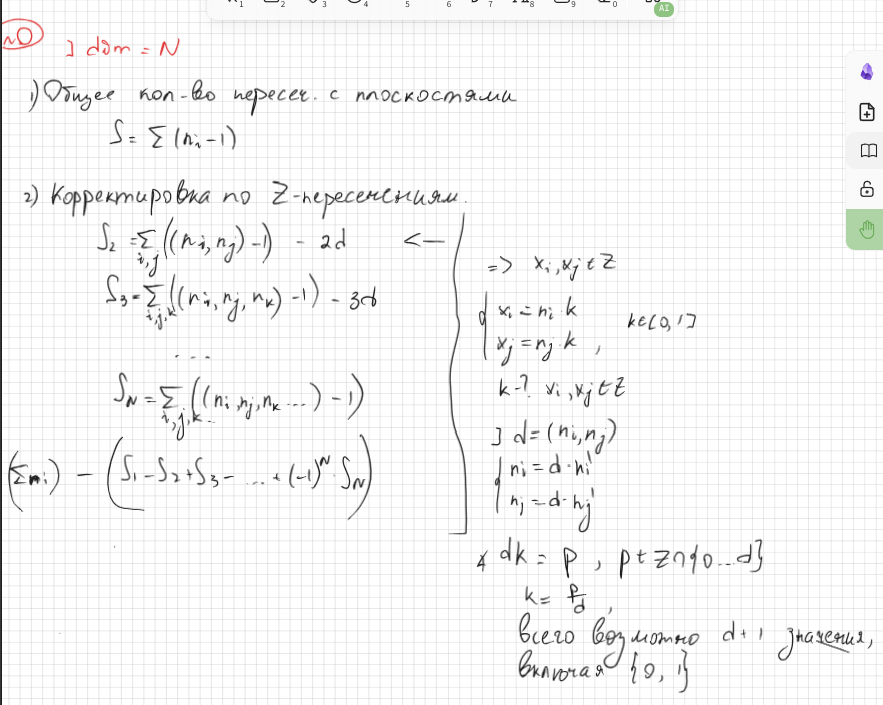 №0
] dim = N
1) Общее кол-во пересеч. с плоскостями
S = Σ (nᵢ-1)
2) Корректировка по Z-пересечениям.
S₂ = Σ_{i,j} ((nᵢ, nⱼ) -1) - 2d <—
S₃ = Σ_{i,j,k} ((nᵢ, nⱼ, nₖ) -1) - 3d
...
S_N = Σ_{i,j,k...} ((nᵢ, nⱼ, nₖ ...) -1)
(Σnᵢ) - (S₁ - S₂ + S₃ - ... + (-1)ᴺ · S_N)
=> xᵢ, xⱼ ∈ Z
{ xᵢ = nᵢ · k
xⱼ = nⱼ · k , k∈[0,1]
k-? xᵢ, xⱼ ∈ Z
] d = (nᵢ, nⱼ)
{ nᵢ = d · nᵢ'
nⱼ = d · nⱼ'
dk = p , p ∈ Z∩{0...d}
k = p/d ,
всего возможно d+1 значения,
включая {0, 1}
AI